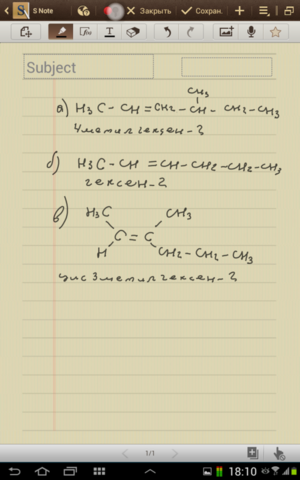 S Note
Закрыть
Сохран.
Subject
CH3
а) H3C - CH = CH2 - CH - CH2 - CH3
4метилгексен-2
б) H3C - CH = CH - CH2 - CH2 - CH3
гексен-2
в) H3C CH3
C = C
H CH2 - CH2 - CH3
цис 3метилгексен-2
1/1
18:10